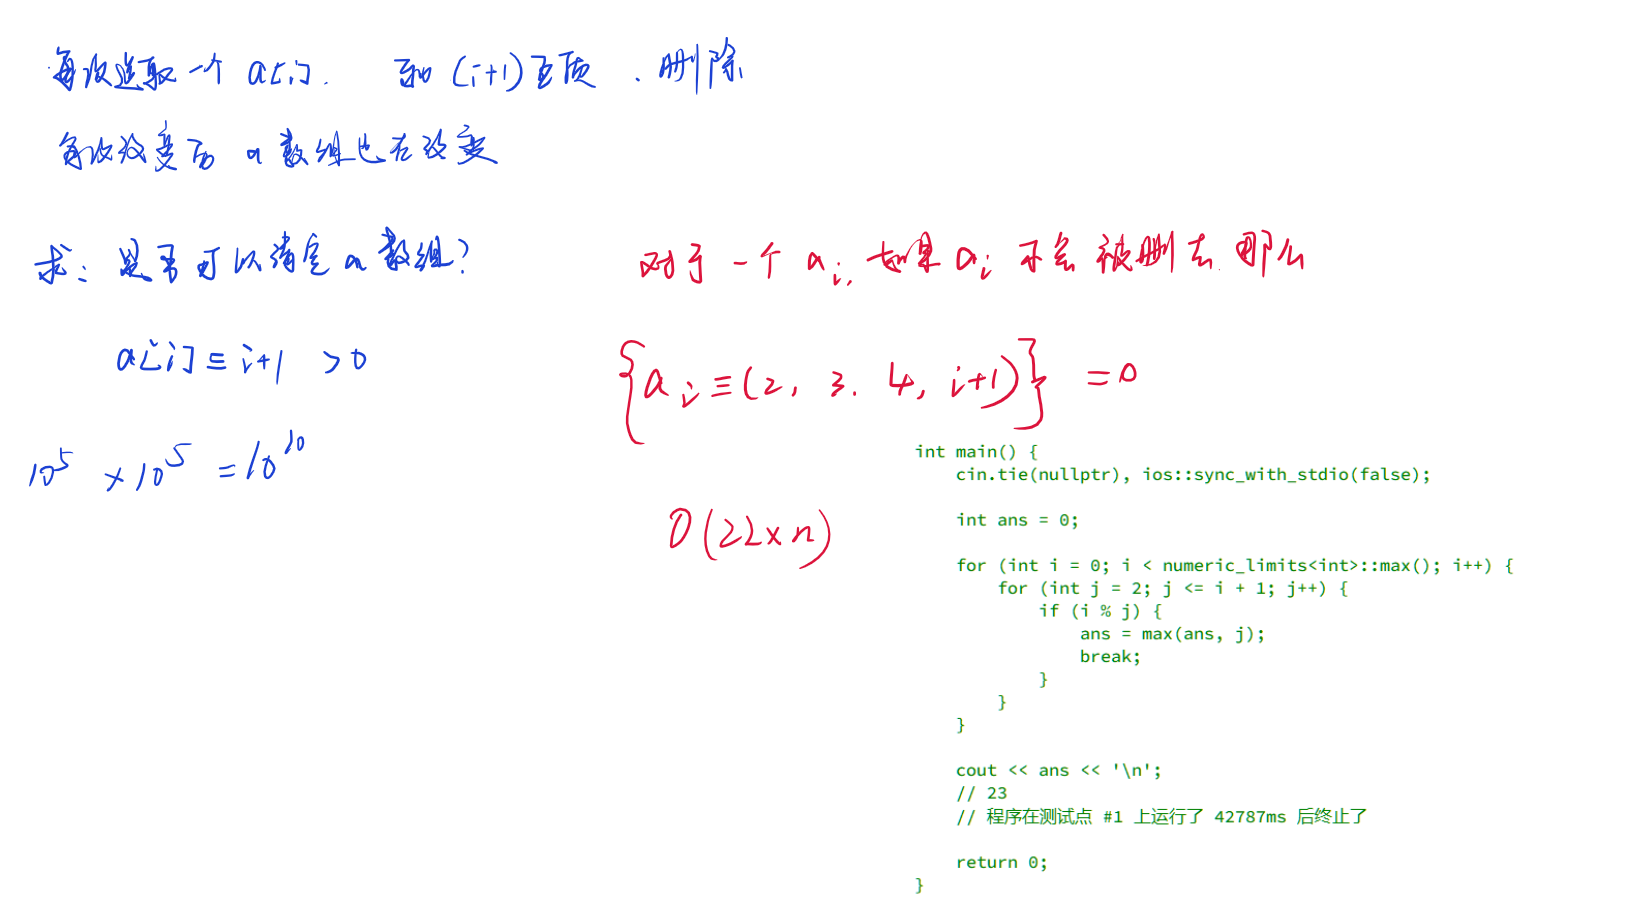 每次选取一个 a[i]. 和 (i+1) 互质 . 删除
每次改变后 a 数组也在改变
求: 是否可以清空 a 数组?
a[i] ≡ i+1 > 0
10^5 × 10^5 = 10^10
对于一个 a_i, 如果 a_i 不会被删去. 那么
{a_i ≡ (2, 3. 4, i+1)} = 0
O(22×n)
int main() {
    cin.tie(nullptr), ios::sync_with_stdio(false);
    int ans = 0;
    for (int i = 0; i < numeric_limits<int>::max(); i++) {
        for (int j = 2; j <= i + 1; j++) {
            if (i % j) {
                ans = max(ans, j);
                break;
            }
        }
    }
    cout << ans << '\n';
    // 23
    // 程序在测试点 #1 上运行了 42787ms 后终止了
    return 0;
}